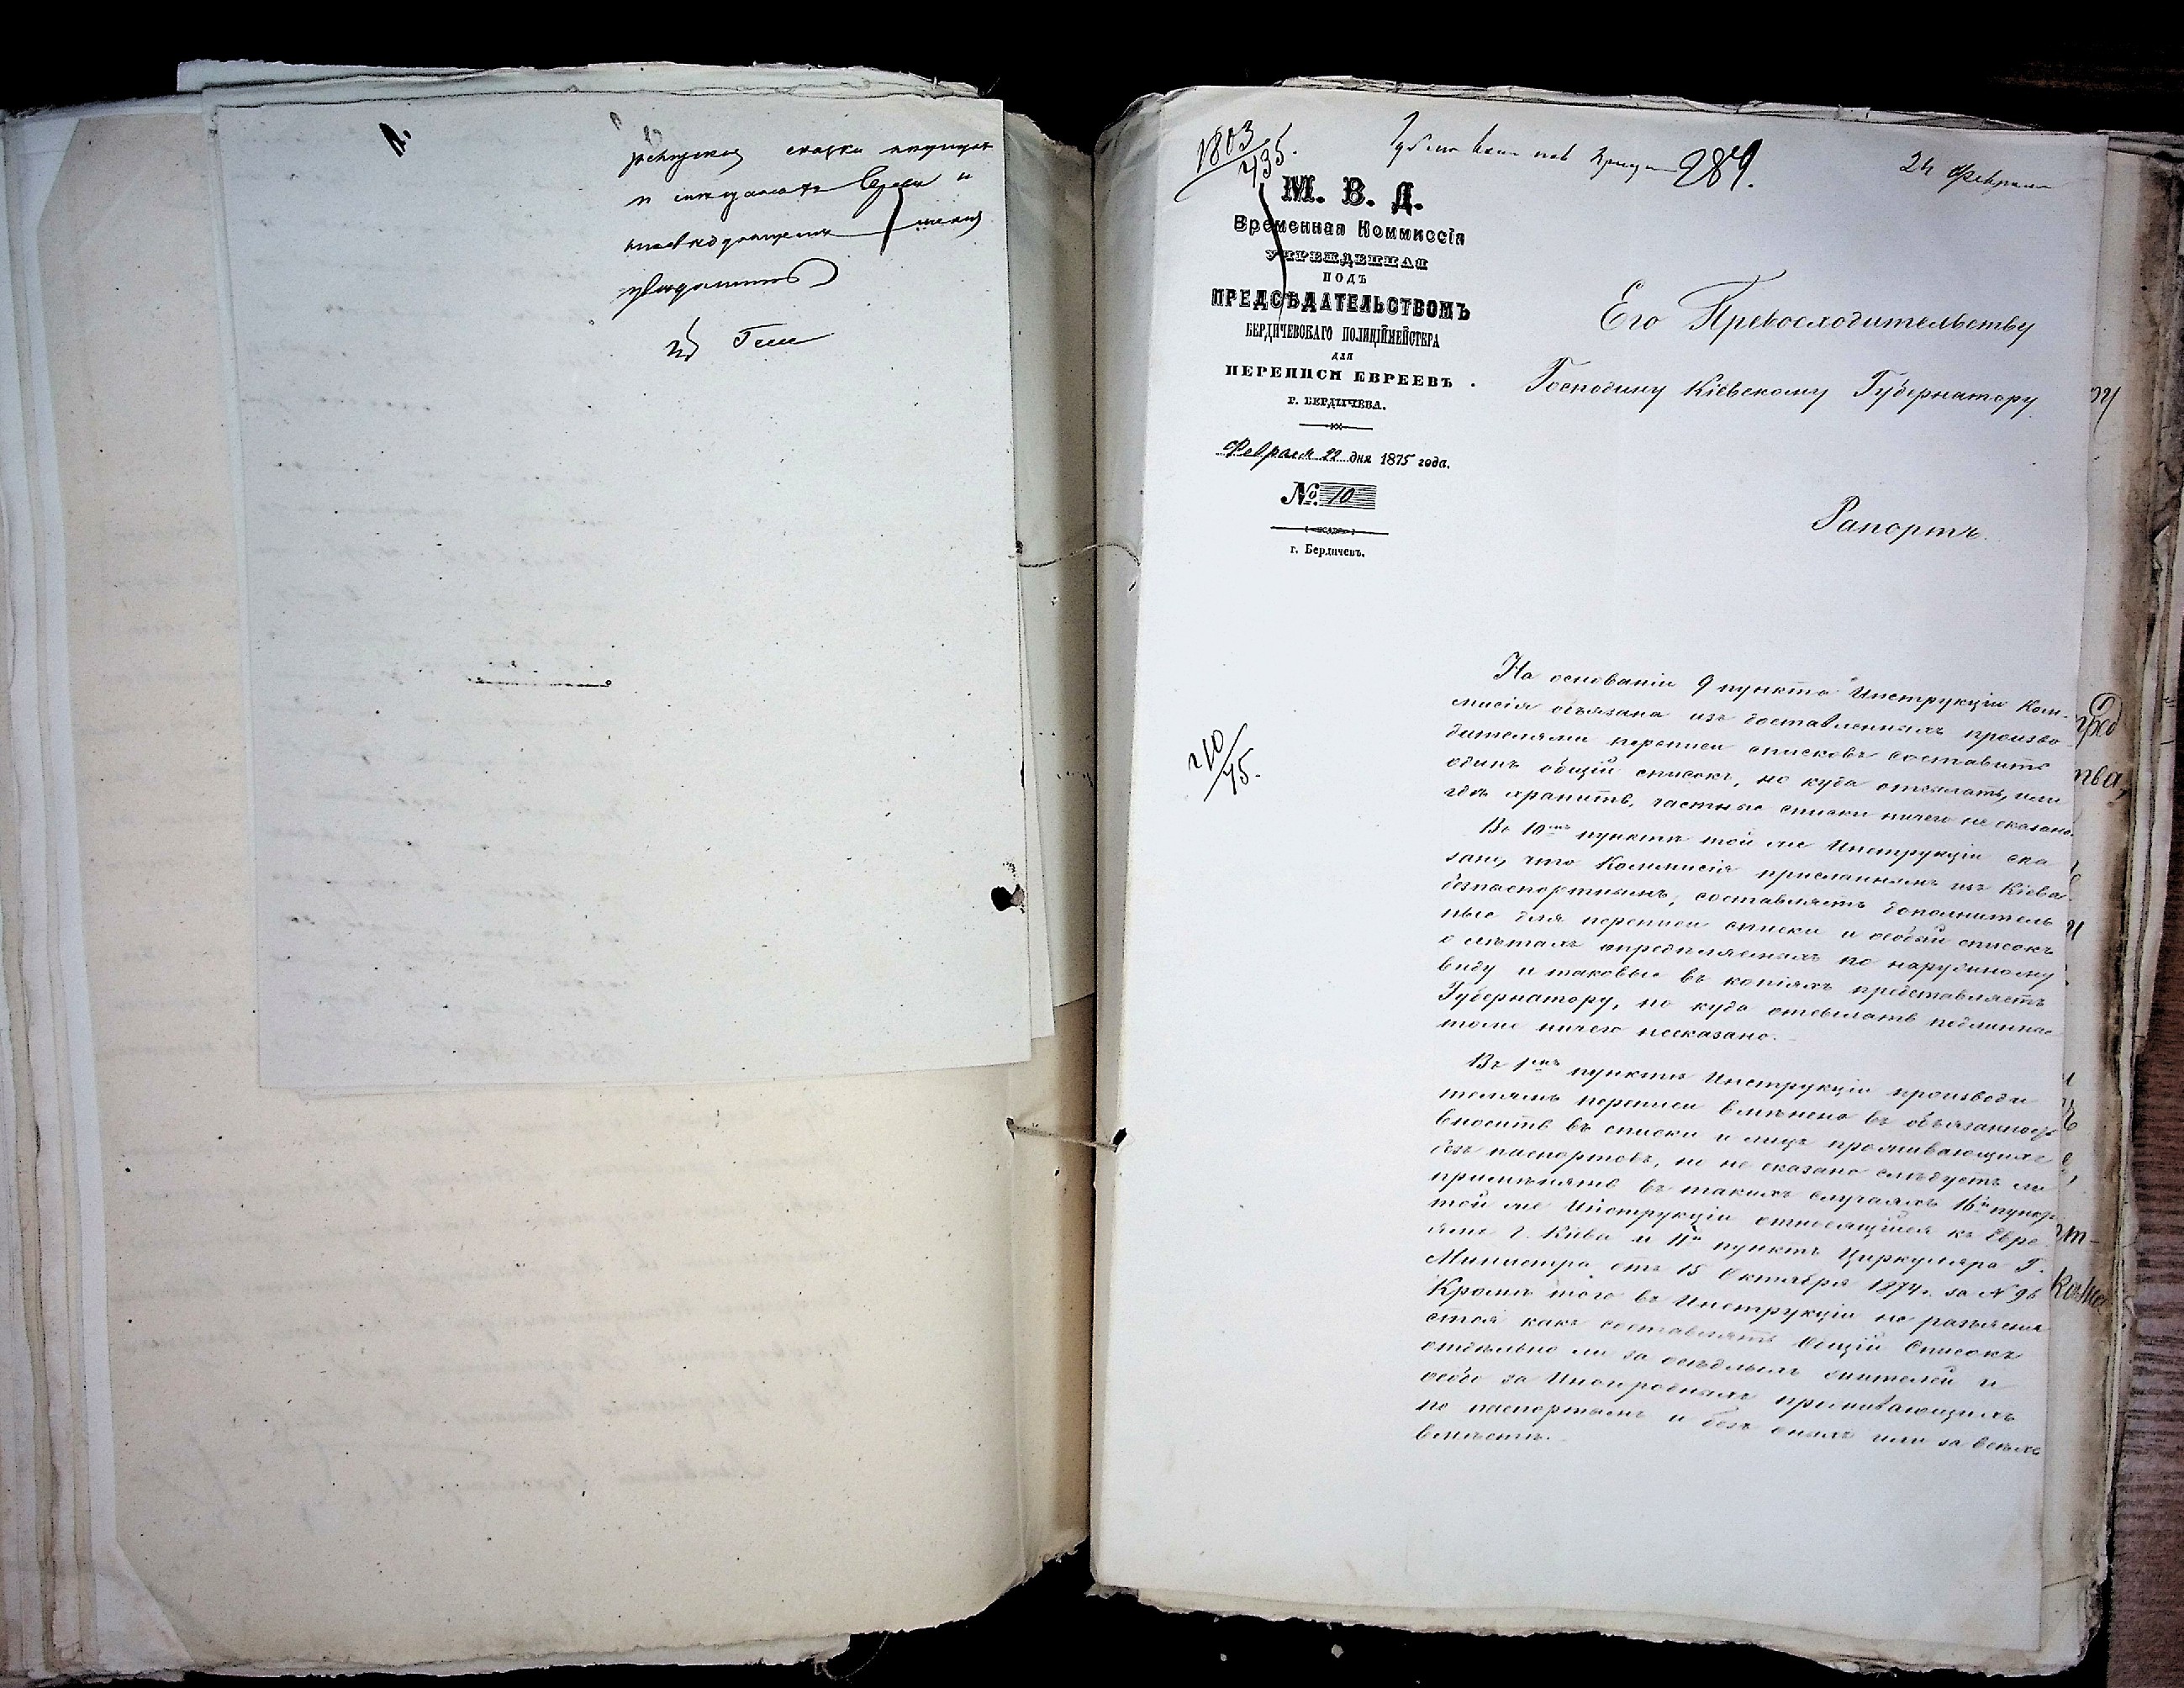 увѣдомить
1803
435.
284.
24 Февраля
М. В. Д.
Временная Коммиссія
УЧРЕЖДЕННАЯ
ПОДЪ
ПРЕДСѢДАТЕЛЬСТВОМЪ
БЕРДИЧЕВСКАГО ПОЛИЦІЙМЕЙСТЕРА
ДЛЯ
ПЕРЕПИСИ ЕВРЕЕВЪ
Г. БЕРДИЧЕВА.
Февраля 22 дня 1875 года.
№ 10
г. Бердичевъ.
Его Превосходительству
Господину Кіевскому Губернатору
Рапортъ.
210/75.
На основаніи 9 пункта Инструкціи Ком-
мисія обязана изъ доставленныхъ произво-
дителями переписи списковъ составить
одинъ общій списокъ, но куда отсылать, или
гдѣ хранить, частные списки ничего не сказано.
Въ 10мъ пунктѣ той же Инструкціи ска
зано, что Коммисія присланнымъ изъ Кіева
безпаспортнымъ, составляетъ дополнитель
ные для переписи списки и особый списокъ
о лѣтахъ опредѣляемыхъ по наружному
виду и таковые въ копіяхъ представляетъ
Губернатору, но куда отсылать подлинные
тоже ничего несказано.
Въ 1мъ пунктѣ Инструкціи производи
телямъ переписи вмѣнено въ обязанность
вносить въ списки и лицъ проживающихъ
безъ паспортовъ, но не сказано слѣдуетъ ли
примѣнять въ такихъ случаяхъ 16й пунктъ
той же Инструкціи относящійся къ Евре
ямъ г. Кіева и 11й пунктъ Циркуляра Г.
Министра отъ 15 Октября 1874 г. за № 96
Кромѣ того въ Инструкціи не разъясня
ется какъ составлять Общій Списокъ
отдѣльно ли за осѣдлыхъ жителей и
особо за Иногородныхъ проживающихъ
по паспортамъ и безъ оныхъ или за всѣхъ
вмѣстѣ.